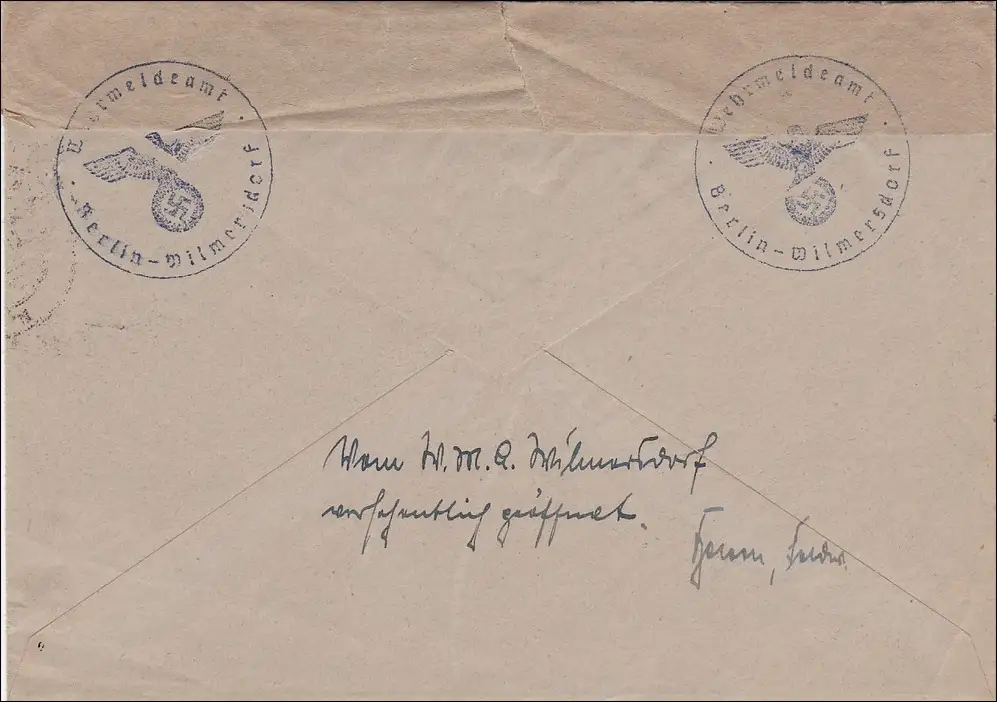 Wehrmeldeamt
Berlin-Wilmersdorf
Wehrmeldeamt
Berlin-Wilmersdorf
Vom W.M.A. Wilmersdorf
versehentlich geöffnet.